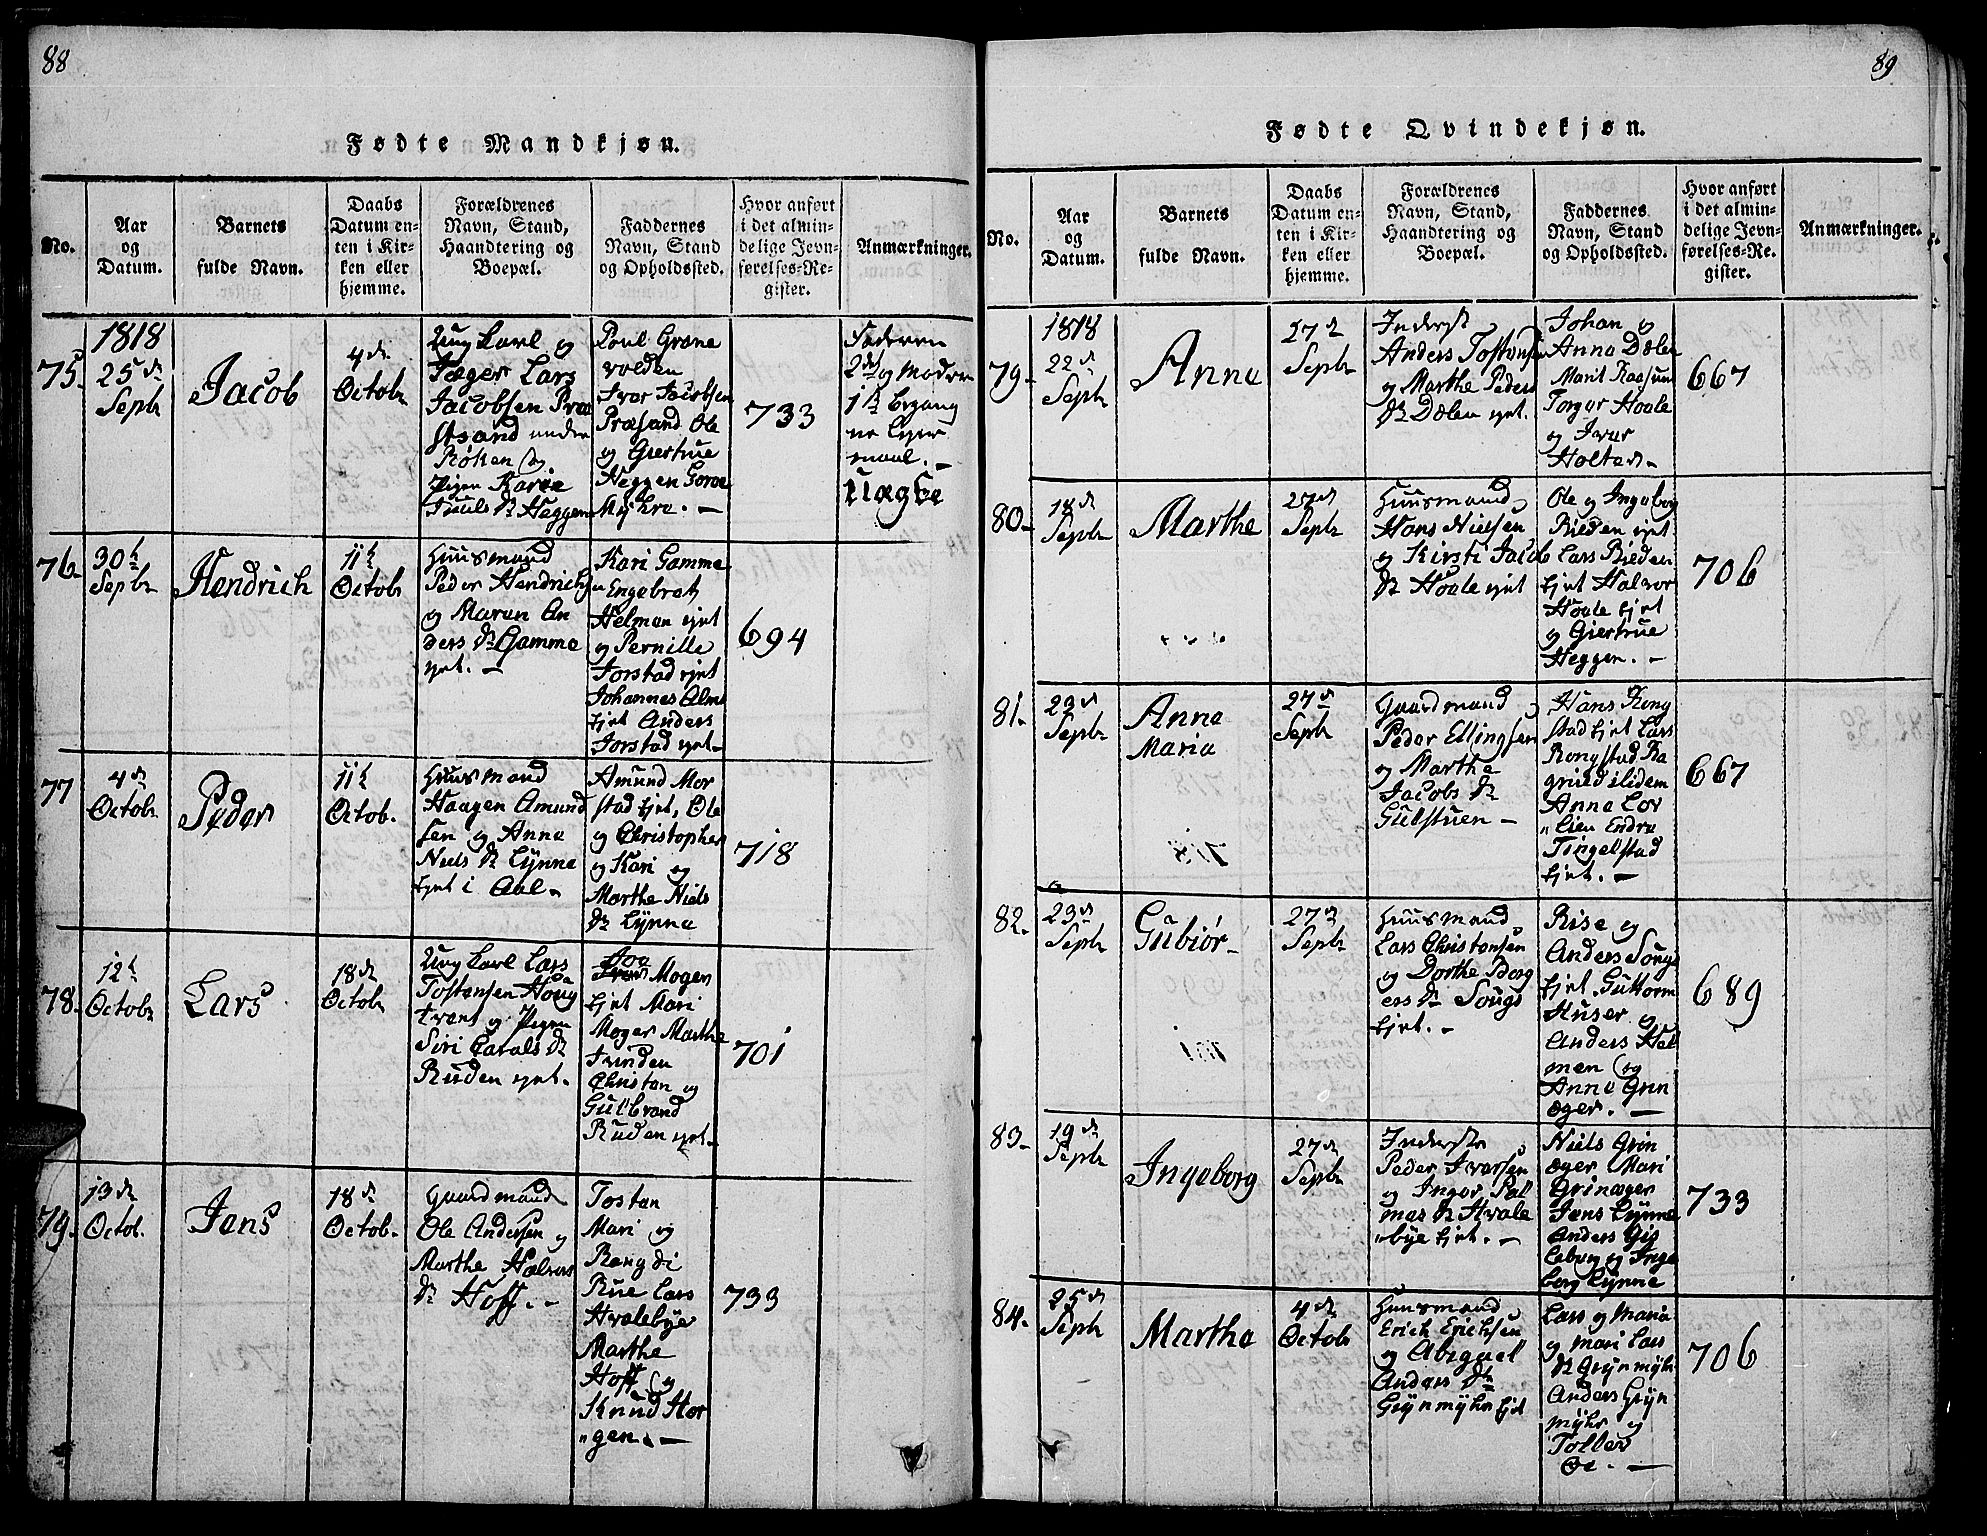 88
Fødte Mandkjøn.
No.
Aar
og
Datum.
Barnets
fulde Navn.
Daabs
Datum en-
ten i Kir-
ken eller
hjemme.
Forældrenes
Navn, Stand,
Haandtering og
Boepæl.
Faddernes
Navn, Stand
og Opholdssted.
Hvor anført
i det almin-
delige Jevn-
førelses-Re-
gister.
Anmærkninger.
75.
1818
25de
Septbr
Jacob
4de
Octobr
Ung Karl og
Jæger Lars
Jacobsen Præ
stsand under
Røken og
Pigen Karie
Juuls Dr Heggen
Poul Grøne
volden
Ivar Jacobsen
Præsand Ole
og Giertrue
Heggen Goroe
Myhre. -
733
Faderen
2det og Moderen
1te begang
ne Leier
maal. -
Uægte
76.
30te
Septbr
Hendrich
11te
Octobr
Huusmand
Peder Hendrichs
og Maren An
ders Dr Gamme
ejet. -
Kari Gamme
Engebret
Helman ejet
og Pernille
Jorstad ejet
Johannes Alm
ejet Anders
Jorstad ejet -
694
77
4de
Octobr
Peder
11te
Octob.
Huusmand
Haagen Amund
sen og Anne
Niels Dr Lynne
ejet i Aal -
Amund Mor
stad ejet, Ole
og Christopher
og Kari og
Marthe Niels
Dr Lynne
718
78.
12te
Octobr
Lars
18de
Octobr
Ung Karl Lars
Tostensen Houg
trent og Pigen
Siri Carals Dr
Ruden ejet.
Mogen
ejet Mari
Moger Marthe
Trinden
Christan og
Gulbrand
Ruden ejet -
701
79.
13de
Octob.
Jens
18de
Octob.
Gaardmand
Ole Andersen og
Marthe Halvors
Dr Hoff. -
Tosten
Mari og
Rangdi
Rue Lars
Hvalebye
Marthe
Hoff og
Knud Hor
gen. -
733
89
Fødte Qvindekjøn.
No.
Aar
og
Datum.
Barnets
fulde Navn.
Daabs
Datum en-
ten i Kir-
ken eller
hjemme.
Forældrenes
Navn, Stand,
Haandtering og
Boepæl.
Faddernes
Navn, Stand
og Opholdssted.
Hvor anført
i det almin-
delige Jevn-
førelses-Re-
gister.
Anmærkninger.
79.
1818
22de
Septbr
Anne
27de
Septbr
Inderst
Anders Tostensen
og Marthe Peders
Dr Dælen ejet.
Johan og
Anne Dælen
Marit Raasum
Torger Hoale
og Ivar
Holter -
667
80.
18de
Septbr
Marthe
27de
Septbr
Huusmand
Hans Nielsen
og Kirsti Jacob
Dr Hoale ejet
Ole og Ingeborg
Rieden ejet
Lars Rieden
ejet Halvor
Hoale ejet
og Giertrue
Heggen. -
706
81.
23de
Septbr
Anne
Maria
27de
Septbr
Gaardmand
Peder Ellingsen
og Marthe
Jacobs Dr
Gulstuen -
Hans Rong
stad ejet Lars
Rongstad Ra
gnild ilidem
Anne Lov
lien Endre
Tingelstad
ejet. -
667
82.
23de
Septbr
Gubiør
27de
Septbr
Huusmand
Lars Christensen
og Dorthe Borg
ers Dr Sougs
ejet. -
Rise og
Anders Sougs
ejet Guttorm
Huser og
Anders Hel
men og
Anne Grin
ager. -
689
83.
19de
Septbr
Ingeborg
27de
Septbr
Inderste
Peder Iversen
og Inger Pal
mes Dr Hvale
bye ejet. -
Niels Grin
ager Mari
Grinager
Jens Lynne
Anders Gis
leborg og Inge
borg Lynne
733
84.
25de
Septbr
Marthe
4de
Octobr
Huusmand
Erich Erichsen
og Abigael
Anders Dr
Grynmyhr ejet
Lars og Maria
og Mari Lars
Dr Grynmyhr
Anders Gryn
myhr og
Tollev
Oe. -
706